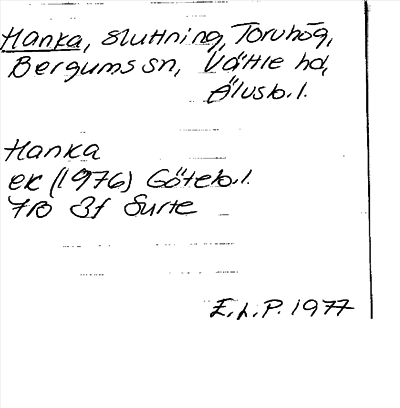 Hanka, sluttning, Toruhög,
Bergums sn, Vättle hd,
Älvsb. l.
Hanka
ek (1976) Göteb. l.
7B 3f Surte
E. L. P. 1977